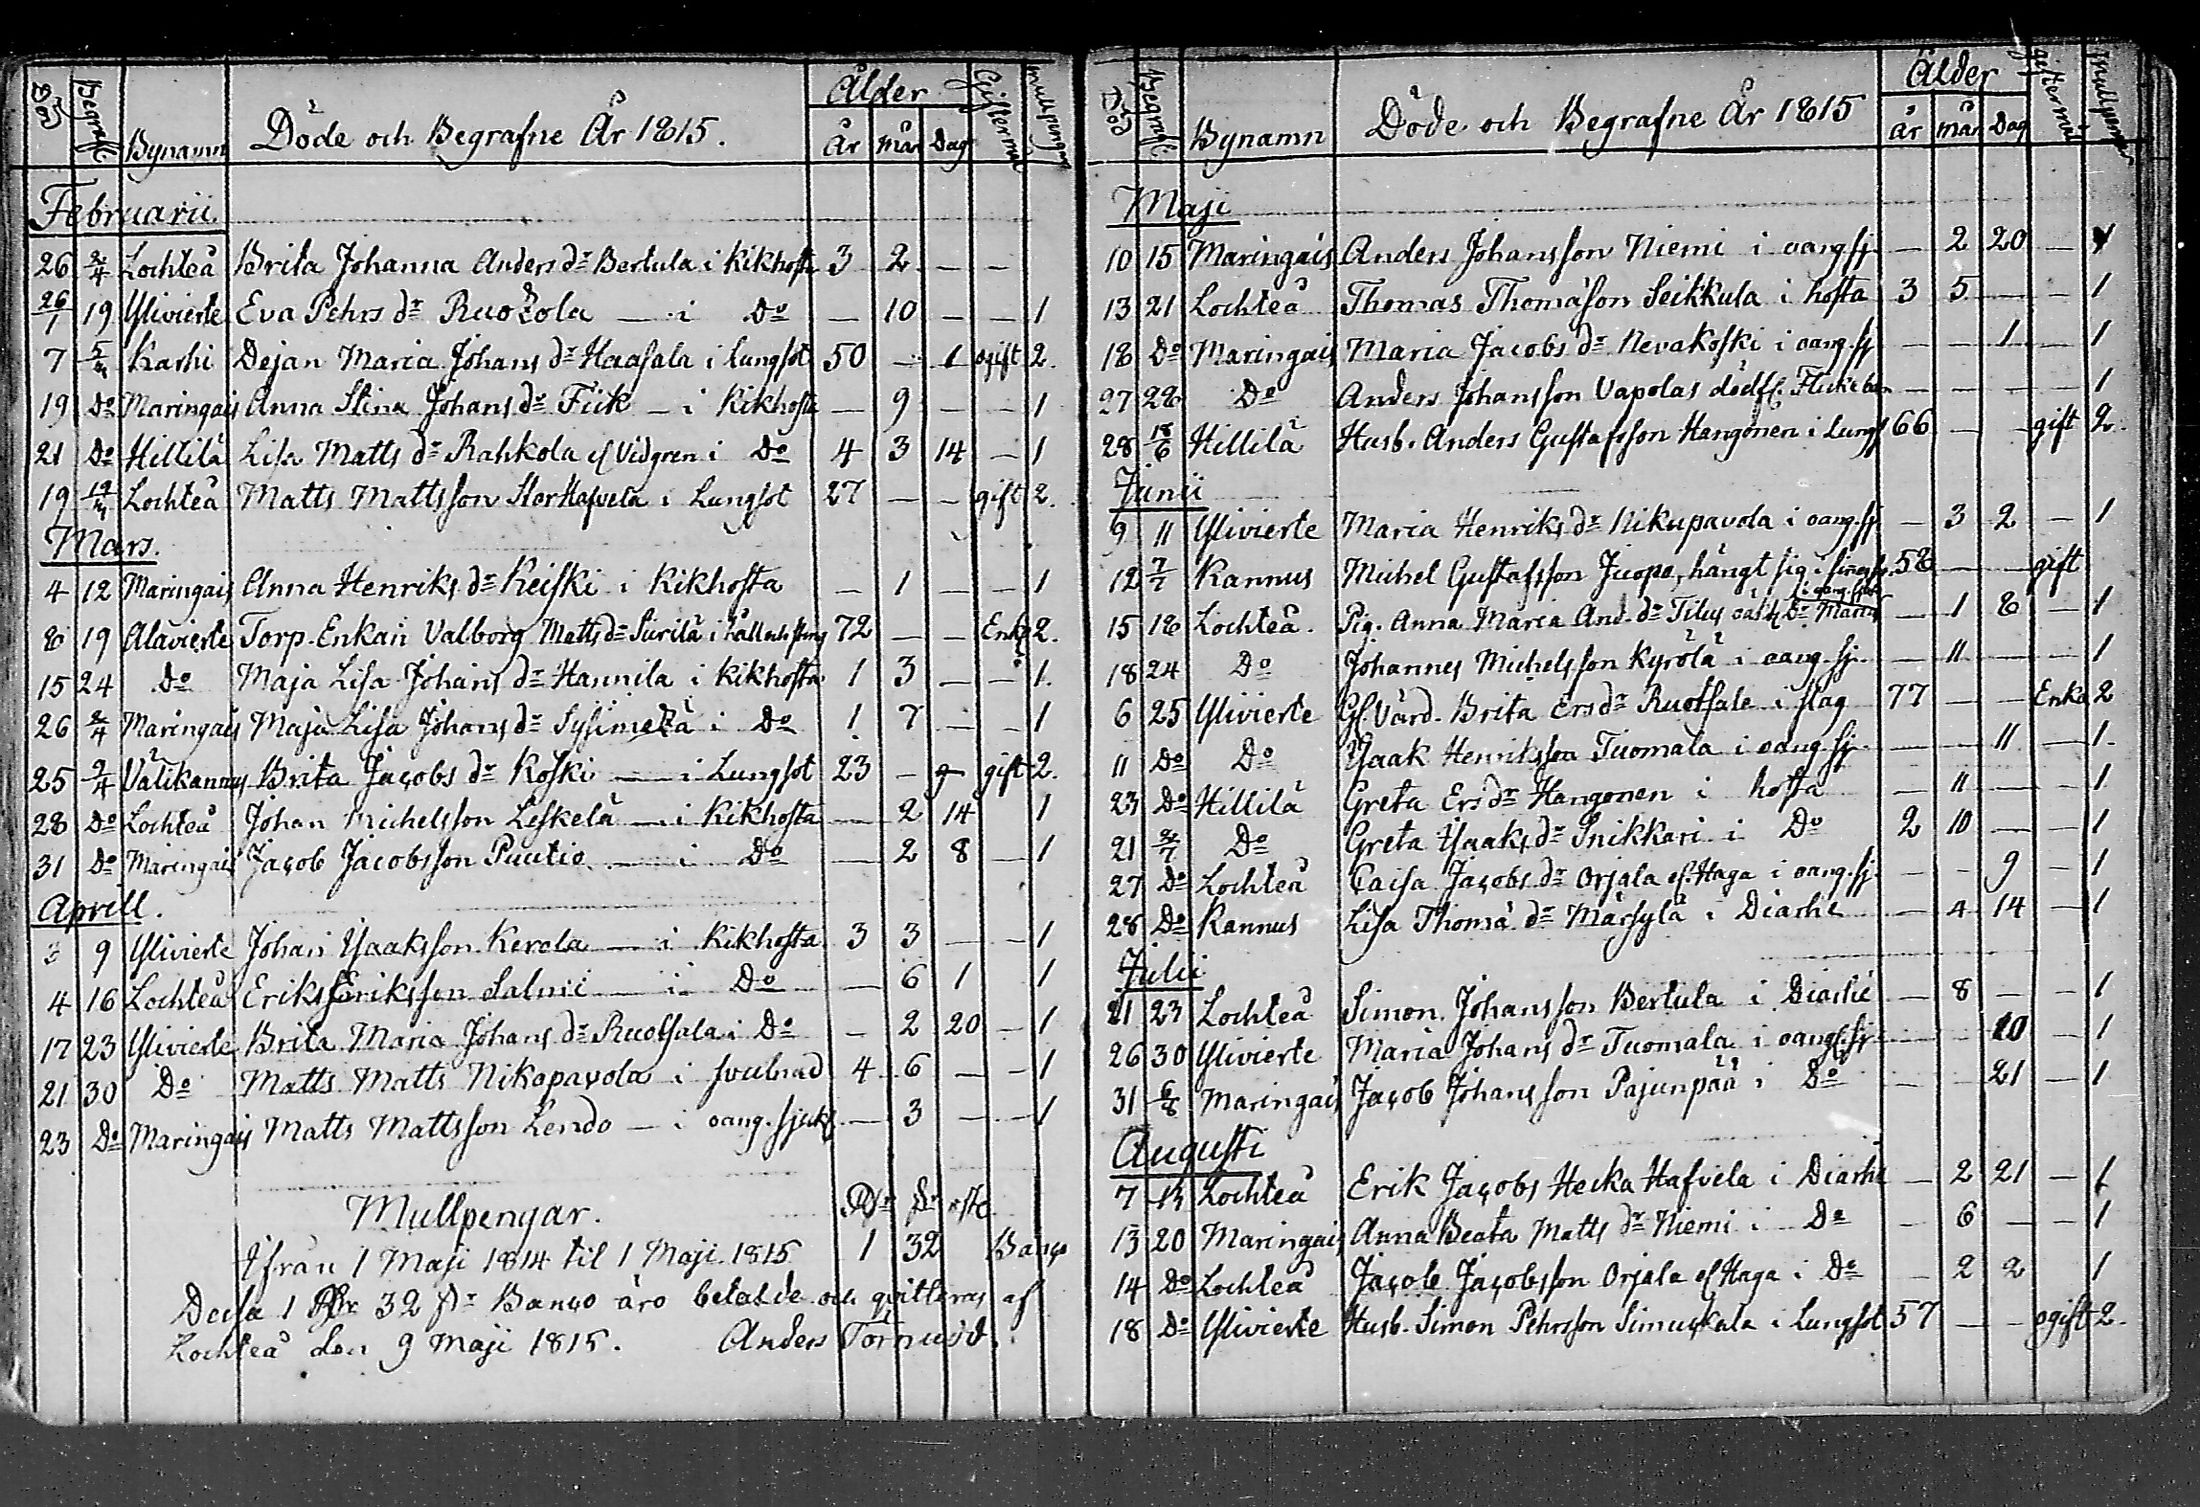 Död Begrafn. Bynamn Döde och Begrafne År 1815. Ålder Giftermål mullpengar
År mån Dag
Februarii
26 2/4 Lochteå Brita Johanna Anders dr Bertula i Kikhosta 3 2 — —
26/1 19 Ylivierte Eva Pehrs dr Ruotzola — i Do — 10 — — 1
7 5/3 Karhi Dejan Maria Johans dr Haasala i Lungsot 50 — 1 ogift 2.
19 Do Maringais Anna Stina Johans dr Fiik — i Kikhosta — 9 — — 1
21 Do Hillilä Lisa Matts dr Rahkola el Vidgren i Do 4 3 14 — 1
19 19/3 Lochteå Matts Mattsson StorHafvela i Lungsot 27 — — gift 2.
Mars.
4 12 Maringais Anna Henriks dr Keiski i Kikhosta — 1 — — 1
8 19 Alavierte Torp. Enkan Valborg Matts dr Siirilä i håll och styng 72 — — Enka 2.
15 24 Do Maja Lisa Johans dr Hannila i Kikhosta 1 3 — — 1.
26 2/4 Maringais Maja Lisa Johans dr Sysimetzä i Do 1 7 — 1
25 9/4 Välikannus Brita Jacobs dr Koski — i Lungsot 23 — 9 gift 2.
28 Do Lochteå Johan Michelsson Leskelä — i Kikhosta — 2 14 1
31 Do Maringais Jacob Jacobsson Puutio — i Do — 2 8 — 1
Aprill.
3 9 Ylivierte Johan Ysaaksson Kerola — i Kikhosta 3 3 — — 1
4 16 Lochteå Eriks Eriksson Salmi — i Do — 6 1 1
17 23 Ylivierte Brita Maria Johans dr Ruotsala i Do — 2 20 — 1
21 30 Do Matts Matts Nikopavola i svulnad 4 6 — — 1
23 Do Maringais Matts Mattsson Lendo — i oang. sjukd. — 3 — — 1
Mullpengar. Rdr sr
Ifrån 1 Maji 1814 til 1 Maji 1815 1 32 Banco
Dessa 1 Rdr 32 sr Banco äro betalde och qvitteras af
Lochteå den 9 Maji 1815. Anders Törnudd.
Död Begrafn. Bynamn Döde och Begrafne År 1815 Ålder giftermål mullpengar
år mån Dag
Maji
10 15 Maringais Anders Johansson Niemi i oang sj. — 2 20 — 1
13 21 Lochteå Thomas Thomasson Seikkula i hosta 3 5 — — 1
18 Do Maringais Maria Jacobs dr Nevakoski i oang. sj — — 1 — 1
27 28 Do Anders Johansson Vapolas dödf. Flickebarn — — — — 1
28 18/6 Hillilä Husb. Anders Gustafsson Hangonen i Lungs 66 — gift 2.
Junii
9 11 Ylivierte Maria Henriks dr Nikupavola i oang. sj. — 3 2 — 1
12 7/7 Kannus Michel Gustafsson Juopo, hängt sig i 58 — — gift
15 18 Lochteå. Pig. Anna Maria And. dr Tilus oäkt Dr Maria i oang. sjukd — 1 8 — 1
18 24 Do Johannes Michelsson Kyrölä i oang. sj. — 11 — — 1
6 25 Ylivierte Gl. Värd. Brita Ersdr Ruotsale i slag 77 — — Enka 2
11 Do Do Ysaak Henriksson Tuomala i oang. sj. — — 11 — 1.
23 Do Hillilä Greta Ersdr Hangonen i hosta — 11 — — 1
21 2/7 Do Greta Ysaaks dr Snikkari i Do 2 10 — — 1
27 Do Lochteå Caisa Jacobs dr Orjala el. Haga i oang. sj. — — 9 — 1
28 Do Kannus Lisa Thoma dr Märsylä i Diarhé — 4 14 — 1
Julii
21 23 Lochteå Simon Johansson Bertula i Diarhé — 8 — — 1
26 30 Ylivierte Maria Johans dr Tuomala i oang. sj. — — 10 — 1
31 6/8 Maringais Jacob Johansson Pajunpää i Do — 21 — 1
Augusti
7 13 Lochteå Erik Jacobs Hecka Hafvela i Diarhé — 2 21 — 1
13 20 Maringais Anna Beata Matts dr Niemi i Do — 6 — — 1
14 Do Lochteå Jacob Jacobsson Orjala el Haga i Do — 2 2 1
18 Do Ylivierte Husb. Simon Pehrsson Simuskala i Lungsot 57 — — ogift 2.